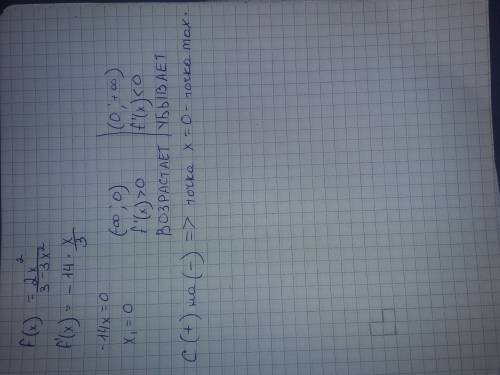 f(x) = 2x² / 3-3x²
f'(x) = -14 · x/3
-14x=0
x₁=0
(-∞; 0) | (0; +∞)
f'(x)>0 | f'(x)<0
ВОЗРАСТАЕТ | УБЫВАЕТ
С (+) на (-) => точка x=0 - точка max.